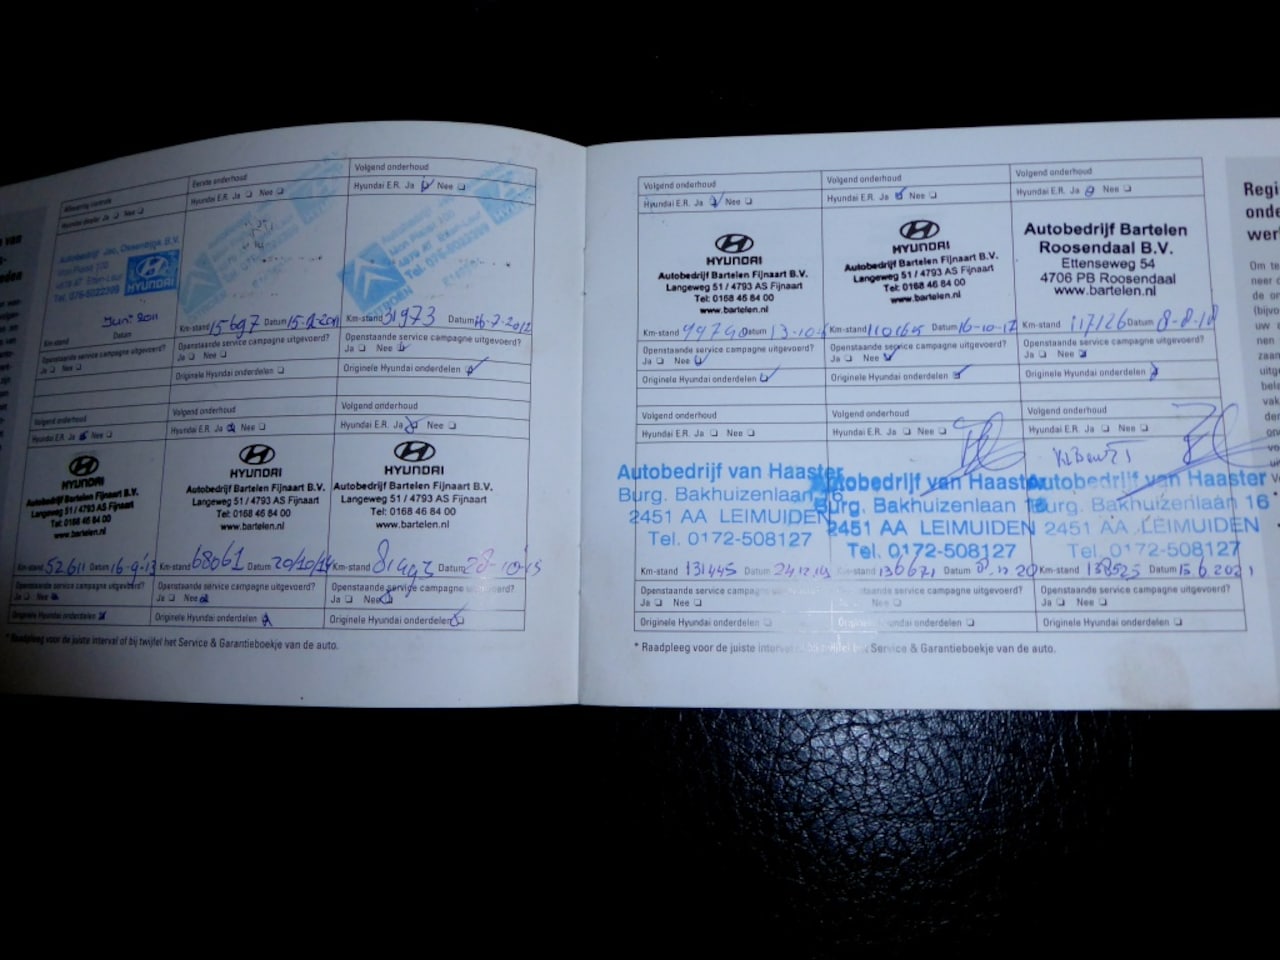 Aflevering controle
Hyundai dealer Ja Nee
Autobedrijf Jac. Ossenblok B.V.
Tel. 076-5022309
HYUNDAI
Juni 2011
Km-stand Datum
Openstaande service campagne uitgevoerd?
Ja Nee
Eerste onderhoud
Hyundai E.R. Ja Nee
Km-stand 15697 Datum
Openstaande service campagne uitgevoerd?
Ja Nee
Originele Hyundai onderdelen
Volgend onderhoud
Hyundai E.R. Ja Nee
Km-stand 31973 Datum 16-7-2012
Openstaande service campagne uitgevoerd?
Ja Nee
Originele Hyundai onderdelen
Volgend onderhoud
Hyundai E.R. Ja Nee
HYUNDAI
Autobedrijf Bartelen Fijnaart B.V.
Langeweg 51 / 4793 AS Fijnaart
Tel: 0168 46 84 00
www.bartelen.nl
Km-stand 52611 Datum 16-9-'13
Openstaande service campagne uitgevoerd?
Ja Nee
Originele Hyundai onderdelen
Volgend onderhoud
Hyundai E.R. Ja Nee
HYUNDAI
Autobedrijf Bartelen Fijnaart B.V.
Langeweg 51 / 4793 AS Fijnaart
Tel: 0168 46 84 00
www.bartelen.nl
Km-stand 68061 Datum 20/10/14
Openstaande service campagne uitgevoerd?
Ja Nee
Originele Hyundai onderdelen
Volgend onderhoud
Hyundai E.R. Ja Nee
HYUNDAI
Autobedrijf Bartelen Fijnaart B.V.
Langeweg 51 / 4793 AS Fijnaart
Tel: 0168 46 84 00
www.bartelen.nl
Km-stand Datum 28-10-'15
Openstaande service campagne uitgevoerd?
Ja Nee
Originele Hyundai onderdelen
* Raadpleeg voor de juiste interval of bij twijfel het Service & Garantieboekje van de auto.
Volgend onderhoud
Hyundai E.R. Ja Nee
HYUNDAI
Autobedrijf Bartelen Fijnaart B.V.
Langeweg 51 / 4793 AS Fijnaart
Tel: 0168 46 84 00
www.bartelen.nl
Km-stand Datum
Openstaande service campagne uitgevoerd?
Ja Nee
Originele Hyundai onderdelen
Volgend onderhoud
Hyundai E.R. Ja Nee
HYUNDAI
Autobedrijf Bartelen Fijnaart B.V.
Langeweg 51 / 4793 AS Fijnaart
Tel: 0168 46 84 00
www.bartelen.nl
Km-stand Datum 16-10-17
Openstaande service campagne uitgevoerd?
Ja Nee
Originele Hyundai onderdelen
Volgend onderhoud
Hyundai E.R. Ja Nee
Autobedrijf Bartelen
Roosendaal B.V.
Ettenseweg 54
4706 PB Roosendaal
www.bartelen.nl
Km-stand 117126 Datum 8-8-18
Openstaande service campagne uitgevoerd?
Ja Nee
Originele Hyundai onderdelen
Volgend onderhoud
Hyundai E.R. Ja Nee
Autobedrijf van Haaster
Burg. Bakhuizenlaan 16
2451 AA LEIMUIDEN
Tel. 0172-508127
Km-stand 131445 Datum
Openstaande service campagne
Ja Nee
Originele Hyundai onderdelen
Volgend onderhoud
Hyundai E.R. Ja Nee
Autobedrijf van Haaster
Burg. Bakhuizenlaan 16
2451 AA LEIMUIDEN
Tel. 0172-508127
Km-stand 136671
service campagne uitgevoerd?
Nee
Hyundai onderdelen
Volgend onderhoud
Autobedrijf van Haaster
Burg. Bakhuizenlaan 16
2451 AA LEIMUIDEN
Tel. 0172-508127
Km-stand 138525 Datum 15.6.2021
Openstaande service campagne uitgevoerd?
Ja Nee
Originele Hyundai onderdelen
* Raadpleeg voor de juiste interval bij twijfel het Service & Garantieboekje van de auto.
Regi
onde
werk
Om te